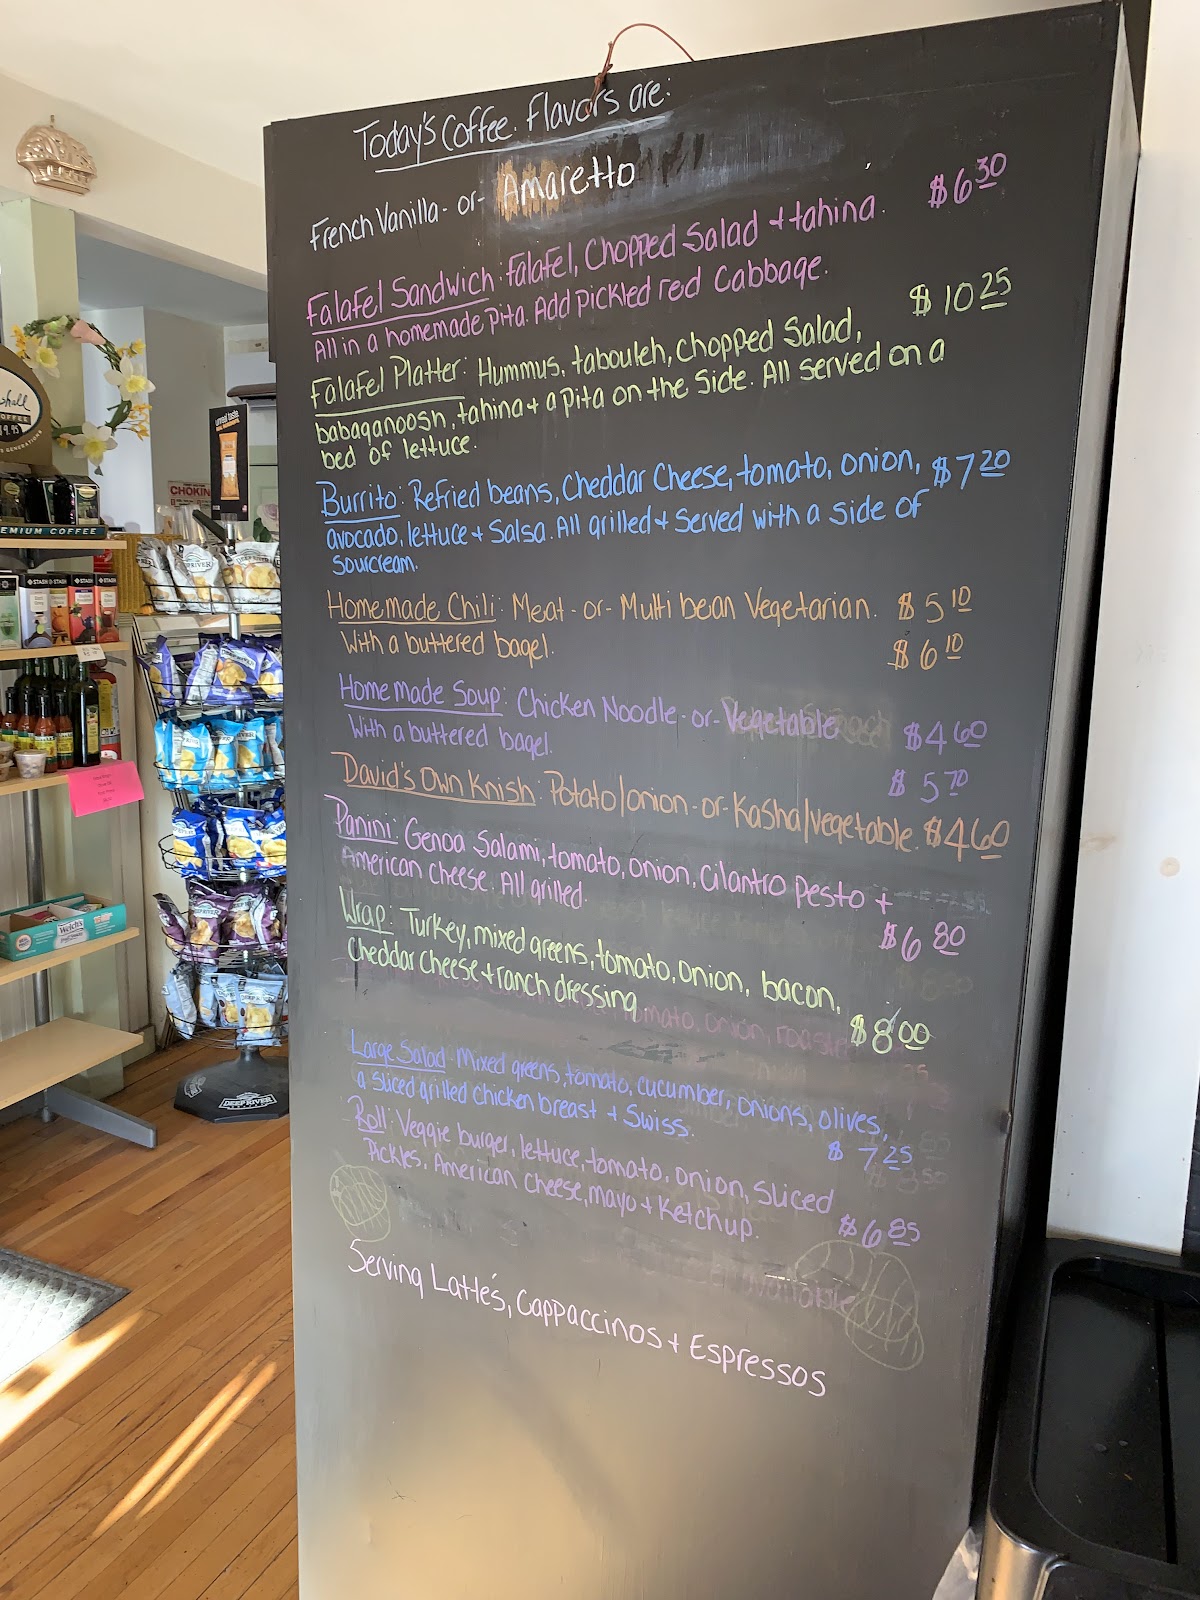 Today's Coffee Flavors are:
French Vanilla - or - Amaretto
Falafel Sandwich: falafel, Chopped Salad + tahina. $6.30
All in a homemade pita. Add pickled red Cabbage.
Falafel Platter: Hummus, tabouleh, Chopped Salad, $10.25
babaganoosh, tahina + a pita on the side. All served on a
bed of lettuce.
Burrito: Refried beans, Cheddar Cheese, tomato, onion, $7.20
avocado, lettuce + Salsa. All grilled + Served with a side of
sourcream.
Homemade Chili: Meat - or - Multi bean Vegetarian. $5.10
With a buttered bagel. $6.10
Homemade Soup: Chicken Noodle - or - Vegetable $4.60
With a buttered bagel. $5.70
David's Own Knish: Potato/onion - or - Kasha/vegetable. $4.60
Panini: Genoa Salami, tomato, onion, Cilantro Pesto +
American Cheese. All grilled. $6.80
Wrap: Turkey, mixed greens, tomato, onion, bacon,
Cheddar cheese + ranch dressing $8.00
Large Salad: Mixed greens, tomato, cucumber, onions, olives,
a sliced grilled chicken breast + Swiss. $7.25
Roll: Veggie burger, lettuce, tomato, onion, sliced
Pickles, American Cheese, mayo + Ketchup. $6.85
Serving Latte's, Cappaccinos + Espressos
COFFEE
PREMIUM COFFEE
STASH STASH
CHOKIN
DEEP RIVER
Welch's
DEEP RIVER